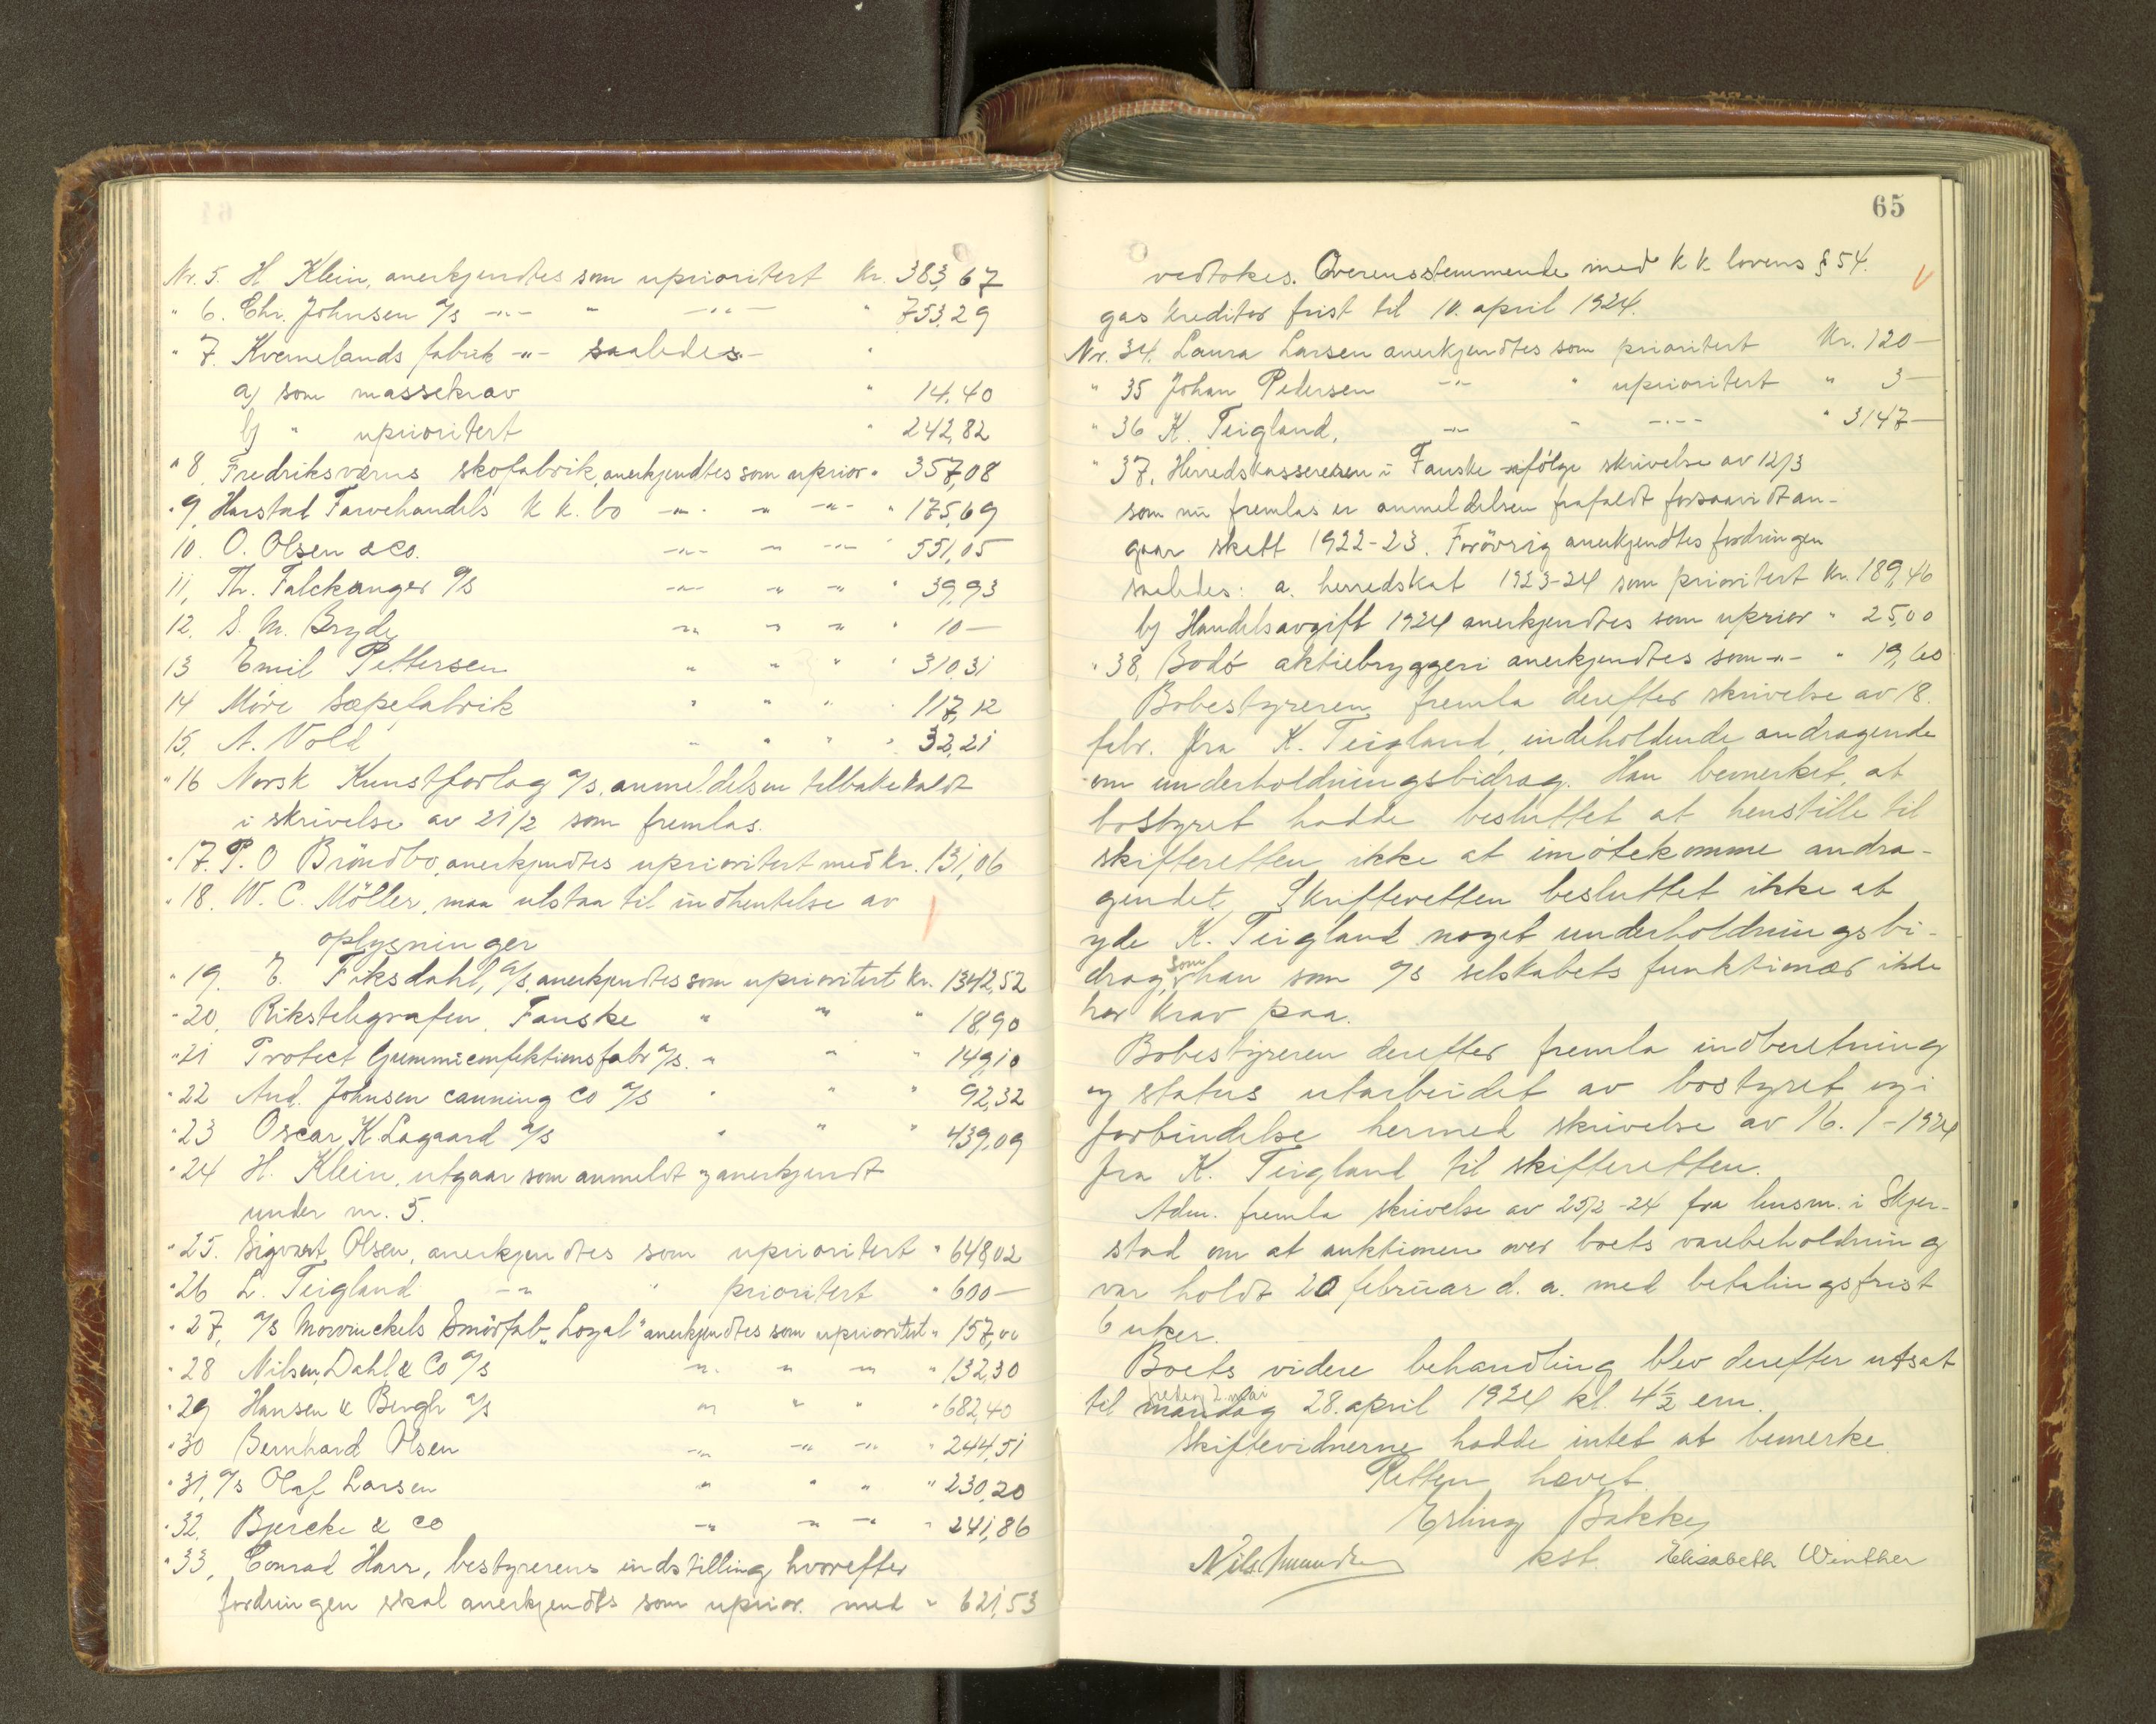 Nr. 5. H Klein, anerkjendtes som uprioritert Kr. 383,67
" 6. Chr. Johnsen a/s -"- " -"- " 753,29
" 7. Kvernelands fabrik -"- saaledes "
a) som massekrav " 14.40
b) " uprioritert " 242,82
" 8. Fredriksværns skofabrik, anerkjendtes som uprior " 357,08
" 9, Harstad Farvehandels k k. bo -"- " -"- " 175,69
10. O. Olsen & Co. -"- " -"- " 551,05
11, Th. Falckanger a/s -"- " " " 39,93
12. S. M. Bryde " " " " 10—
13 Emil Pettersen " " " " 310,31
14 Möre Sæpefabrik " " " " 117,12
15, A. Vold " " " " 32,21
" 16 Norsk Kunstforlag a/s, anmeldelsen tilbakekaldt
i skrivelse av 21/2 som fremlas.
" 17. P. O Bröndbo, anerkjendtes uprioritert med kr. 131,06
" 18. W. C. Möller, maa utstaa til indhentelse av
oplysninger
" 19. E. Fiksdahl, a/s, anerkjendtes som uprioritert Kr. 1342,52
" 20, Rikstelegrafen, Fauske " " " 18,90
" 21 Protect Gummiconfektionsfabr a/s. " " " 149,10
" 22 And. Johnsen canning Co a/s " " " 92,32
" 23 Oscar K Lagaard a/s " " " 439,09
" 24 H. Klein, utgaar som anmeldt og anerkjendt
under nr. 5.
" 25. Sigvart Olsen, anerkjendtes som uprioritert " 648,02
" 26 L. Teigland -"- " prioritert " 600—
" 27, a/s Mowinckels Smörfab. "Loyal" anerkjendtes som uprioritert " 157,00
" 28 Nilsen, Dahl & Co a/s " " " " 132,30
" 29 Hansen & Bergh a/s " " " " 682,40
" 30 Bernhard Olsen -"- -"- -"- " 244,51
" 31, a/s Olaf Larsen " " " " 230,20
" 32. Bjercke & Co -"- -"- -"- " 241,86
" 33, Conrad Harr, bestyrerens indstilling hvorefter
fordringen skal anerkjendts som uprior. med " 621,53
65
vedtokes. Overensstemmende med k k lovens § 54.
gas kreditor frist til 10. april 1924.
Nr. 34. Laura Larsen anerkjendtes som prioritert Kr. 120—
" 35 Johan Pedersen -"- " uprioritert " 3—
" 36 K. Teigland, -"- " -"- " 3147—
" 37, Herredskassereren i Fauske ifölge skrivelse av 12/3
som nu fremlas er anmeldelsen frafaldt forsaavidt an-
gaar skatt 1922-23. Forövrig anerkjendtes fordringen
saaledes: a. herredskat 1923-24 som prioritert Kr. 189,46
b) Handelsavgift 1924 anerkjendtes som uprior " 25,00
" 38, Bodö aktiebryggeri anerkjendtes som -"- " 19,60
Bobestyreren fremla derefter skrivelse av 18.
febr. fra K. Teigland, indeholdende andragende
om underholdningsbidrag. Han bemerket, at
bostyret hadde besluttet at henstille til
skifteretten ikke at imötekomme andra-
gendet. Skifteretten besluttet ikke at
yde K. Teigland noget underholdningsbi-
drag, som han som a/s selskabets funktionær ikke
har krav paa.
Bobestyreren derefter fremla indberetning
og status utarbeidet av bostyret og i
forbindelse hermed skrivelse av 16. 1-1924
fra K. Teigland til skifteretten.
Adm. fremla skrivelse av 25/2-24 fra lensm. i Skjer-
stad om at auktionen over boets varebeholdning
var holdt 20 februar d. a. med betalingsfrist
6 uker.
Boets videre behandling blev derefter utsat
fredag 2. mai
til mandag 28. april 1924 kl. 4½ em.
Skiftevidnerne hadde intet at bemerke.
Retten hævet.
Erling Bakke
kst. Elisabeth Winther